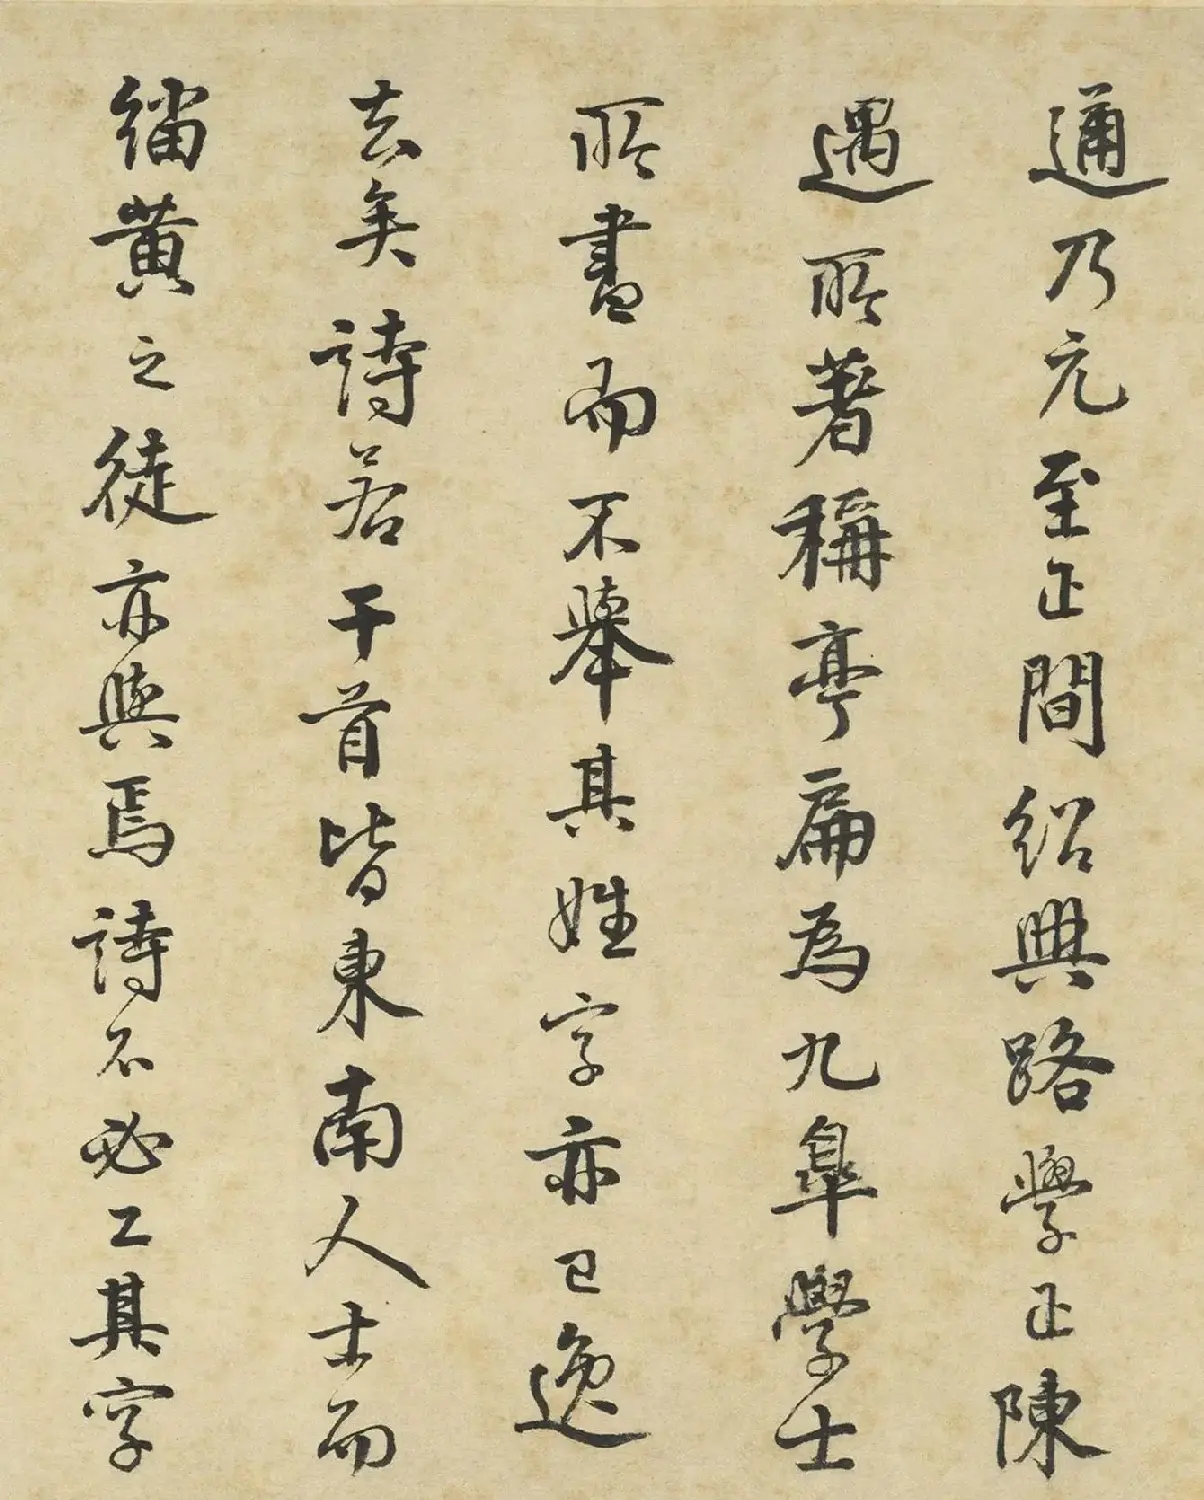 通乃元至正間紹興路學正陳
遇所著稱亭扁為九皐學士
所書而不舉其姓字亦已逸
去矣詩若干首皆東南人士而
緇黄之徒亦與焉詩不必工其字